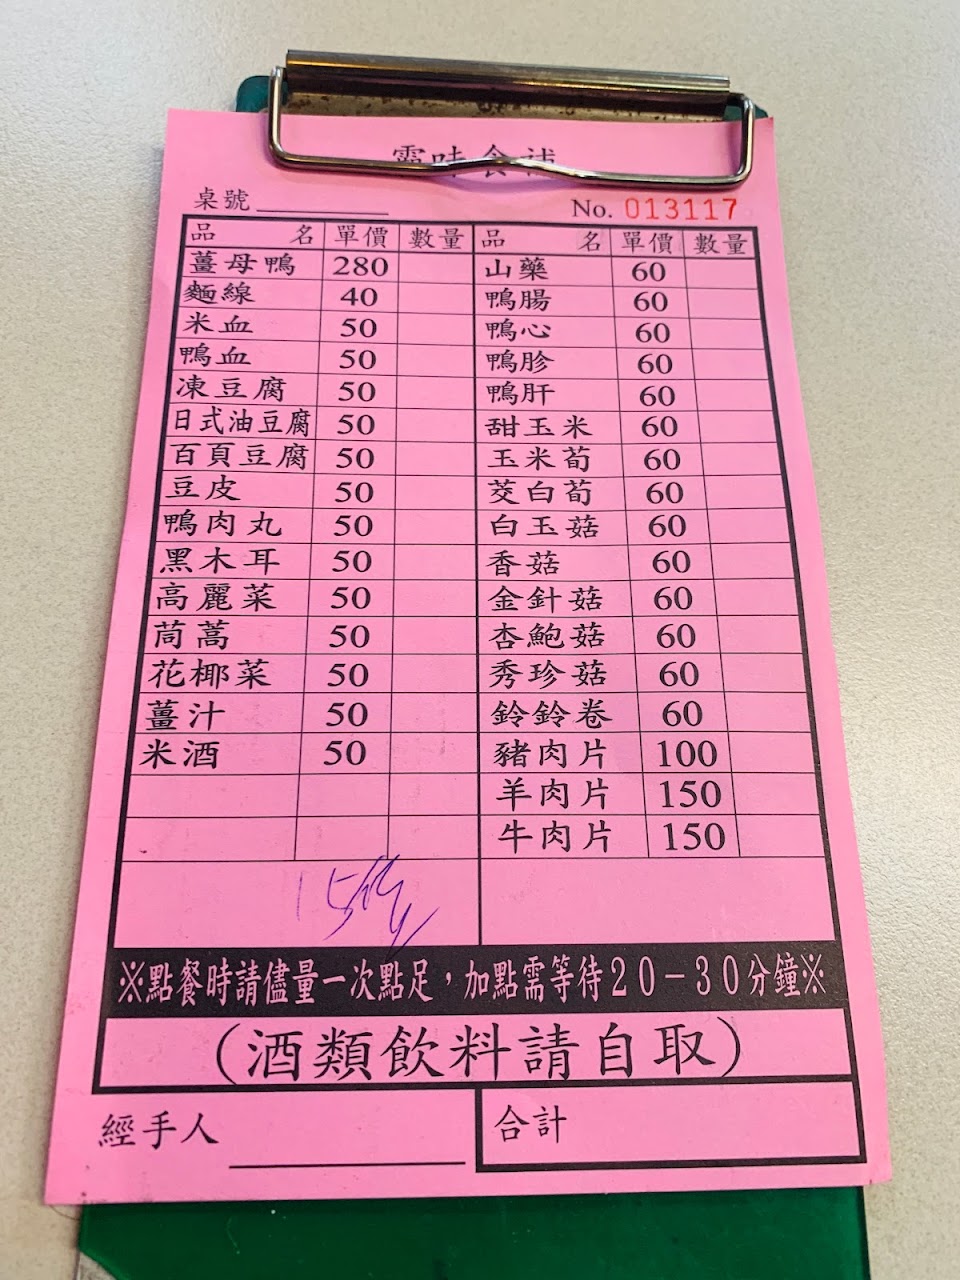 霸味食補
桌號
No. 013117
品名 單價 數量 品名 單價 數量
薑母鴨 280 山藥 60
麵線 40 鴨腸 60
米血 50 鴨心 60
鴨血 50 鴨胗 60
凍豆腐 50 鴨肝 60
日式油豆腐 50 甜玉米 60
百頁豆腐 50 玉米荀 60
豆皮 50 茭白荀 60
鴨肉丸 50 白玉菇 60
黑木耳 50 香菇 60
高麗菜 50 金針菇 60
茼蒿 50 杏鮑菇 60
花椰菜 50 秀珍菇 60
薑汁 50 鈴鈴卷 60
米酒 50 豬肉片 100
羊肉片 150
牛肉片 150
※點餐時請儘量一次點足，加點需等待20－30分鐘※
(酒類飲料請自取)
經手人 合計